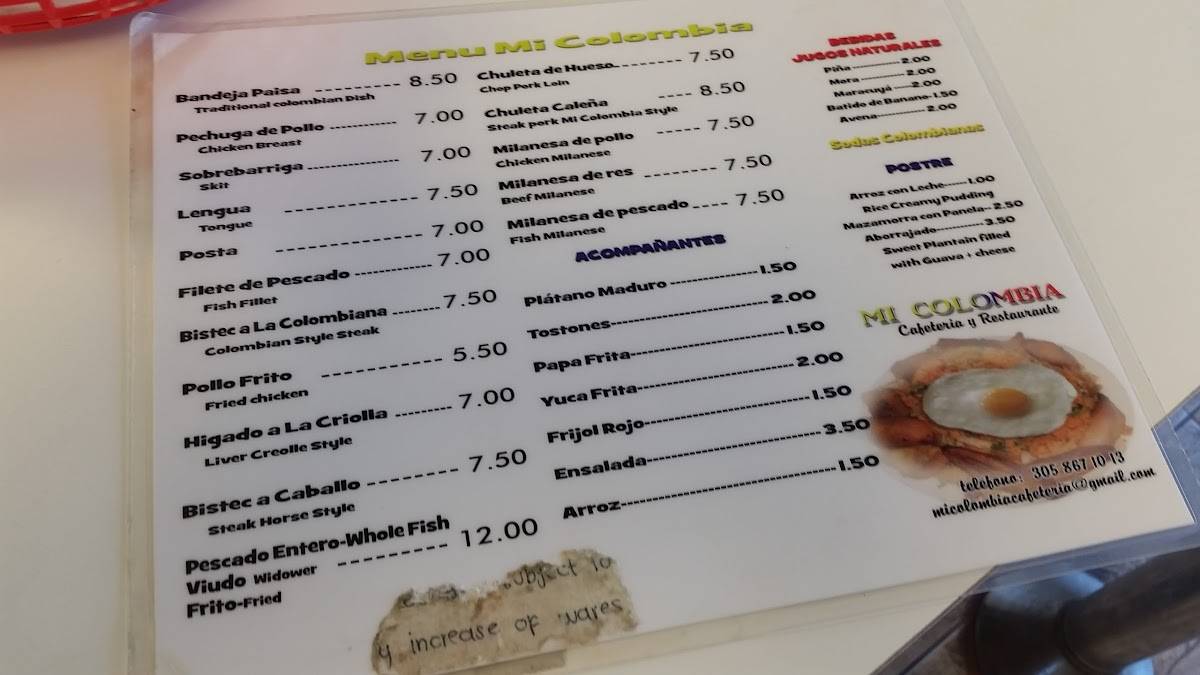 Menu Mi Colombia
Bandeja Paisa --------- 8.50
Traditional colombian Dish
Pechuga de Pollo ------------ 7.00
Chicken Breast
Sobrebarriga ---------------- 7.00
Skit
Lengua -------------- 7.50
Tongue
Posta --------------- 7.00
Filete de Pescado ------------- 7.00
Fish Fillet
Bistec a La Colombiana -------- 7.50
Colombian Style Steak
Pollo Frito ------------- 5.50
Fried chicken
Higado a La Criolla --------- 7.00
Liver Creolle Style
Bistec a Caballo ---------- 7.50
Steak Horse Style
Pescado Entero-Whole Fish
Viudo Widower ---------- 12.00
Frito-Fried
Chuleta de Hueso--------- 7.50
Chop Pork Loin
Chuleta Caleña ---- 8.50
Steak pork Mi Colombia Style
Milanesa de pollo ----- 7.50
Chicken Milanese
Milanesa de res -------- 7.50
Beef Milanese
Milanesa de pescado ---- 7.50
Fish Milanese
ACOMPAÑANTES
Plátano Maduro ----------------1.50
Tostones-----------------------------2.00
Papa Frita----------------------------1.50
Yuca Frita----------------------------2.00
Frijol Rojo----------------------------1.50
Ensalada-------------------------------3.50
Arroz--------------------------------------1.50
BEBIDAS
JUGOS NATURALES
Piña ------------2.00
Mora -----------2.00
Maracuyá ----2.00
Batido de Banano-1.50
Avena------------2.00
Sodas Colombianas
POSTRE
Arroz con Leche------1.00
Rice Creamy Pudding
Mazamorra con Panela--2.50
Aborrajado-------------3.50
Sweet Plantain filled
with Guava + cheese
MI COLOMBIA
Cafeteria y Restaurante
telefono: 305 867 10 13
micolombiacafeteria@gmail.com
subject to
y increase of wares